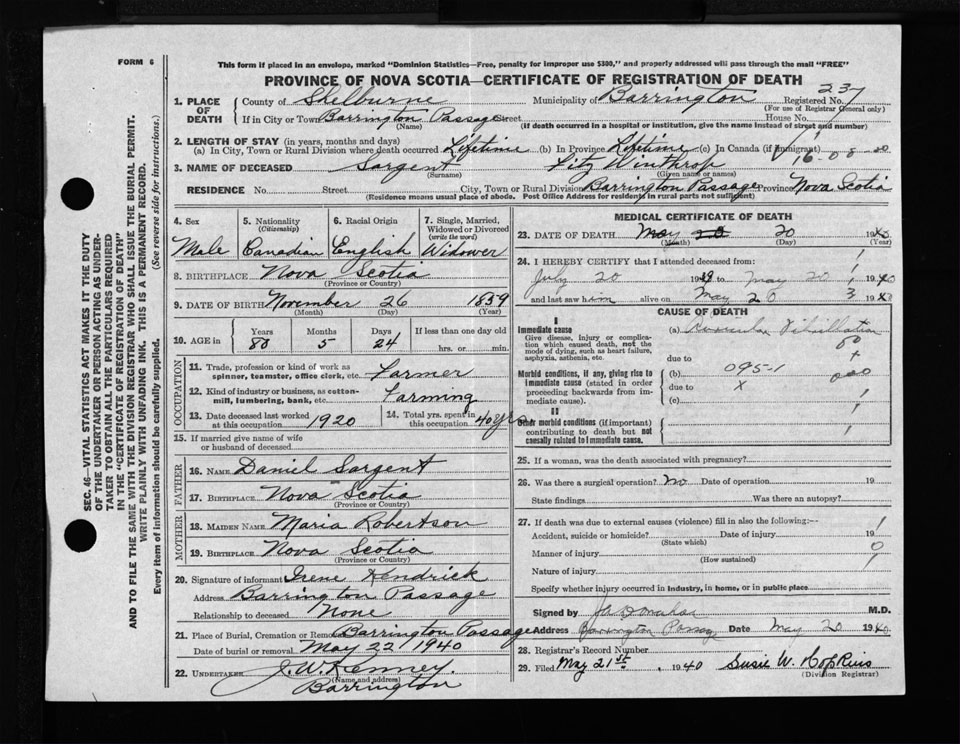 FORM 6
This form if placed in an envelope, marked "Dominion Statistics—Free, penalty for improper use $300," and properly addressed will pass through the mail "FREE"
PROVINCE OF NOVA SCOTIA—CERTIFICATE OF REGISTRATION OF DEATH
SEC. 46—VITAL STATISTICS ACT MAKES IT THE DUTY
OF THE UNDERTAKER OR PERSON ACTING AS UNDER-
TAKER TO OBTAIN ALL THE PARTICULARS REQUIRED
IN THE "CERTIFICATE OF REGISTRATION OF DEATH"
AND TO FILE THE SAME WITH THE DIVISION REGISTRAR WHO SHALL ISSUE THE BURIAL PERMIT.
WRITE PLAINLY WITH UNFADING INK. THIS IS A PERMANENT RECORD.
Every item of information should be carefully supplied. (See reverse side for instructions.)
1. PLACE OF DEATH County of Shelburne Municipality of Barrington Registered No. 237
(For use of Registrar General only)
If in City or Town Barrington Passage Street House No.
(Name) (If death occurred in a hospital or institution, give the name instead of street and number)
2. LENGTH OF STAY (in years, months and days)
(a) In City, Town or Rural Division where death occurred Lifetime (b) In Province Lifetime (c) In Canada (if immigrant)
3. NAME OF DECEASED Sargent Fitz Winthrop
(Surname) (Given name or names)
RESIDENCE No. Street City, Town or Rural Division Barrington Passage Province Nova Scotia
(Residence means usual place of abode. Post Office Address for residents in rural parts not sufficient)
4. Sex 5. Nationality 6. Racial Origin 7. Single, Married,
(Citizenship) Widowed or Divorced
(write the word)
Male Canadian English Widower
8. BIRTHPLACE Nova Scotia
(Province or Country)
9. DATE OF BIRTH November 26 1859
(Month) (Day) (Year)
10. AGE in Years Months Days If less than one day old
80 5 24 hrs. or min.
OCCUPATION
11. Trade, profession or kind of work as
spinner, teamster, office clerk, etc. Farmer
12. Kind of industry or business, as cotton-
mill, lumbering, bank, etc. Farming
13. Date deceased last worked 14. Total yrs. spent in
at this occupation 1920 this occupation 40 yrs
15. If married give name of wife
or husband of deceased
FATHER
16. NAME Daniel Sargent
17. BIRTHPLACE Nova Scotia
(Province or Country)
MOTHER
18. MAIDEN NAME Maria Robertson
19. BIRTHPLACE Nova Scotia
(Province or Country)
20. Signature of informant Irene Kendrick
Address Barrington Passage
Relationship to deceased None
21. Place of Burial, Cremation or Removal Barrington Passage
Date of burial or removal May 22 1940
22. UNDERTAKER J. W. Kenney.
(Name and address)
Barrington
MEDICAL CERTIFICATE OF DEATH
23. DATE OF DEATH May 20 1940
(Month) (Day) (Year)
24. I HEREBY CERTIFY that I attended deceased from:
July 20 1939 to May 20 1940
and last saw him alive on May 20 1940
CAUSE OF DEATH
I
Immediate cause (a) Auricular Fibrillation
Give disease, injury or complica-
tion which caused death, not the
mode of dying, such as heart failure,
asphyxia, asthenia, etc. due to
Morbid conditions, if any, giving rise to (b) 095-1
immediate cause (stated in order due to x
proceeding backwards from im-
mediate cause). (c)
II
Other morbid conditions (if important)
contributing to death but not
causally related to immediate cause.
25. If a woman, was the death associated with pregnancy?
26. Was there a surgical operation? No Date of operation 19
State findings Was there an autopsy?
27. If death was due to external causes (violence) fill in also the following:—
Accident, suicide or homicide? Date of injury 19
(State which)
Manner of injury
(How sustained)
Nature of injury
Specify whether injury occurred in industry, in home, or in public place
Signed by M.D.
Address Barrington Passage Date May 20 1940
28. Registrar's Record Number
29. Filed May 21st. 1940 Susie W. Hopkins
(Division Registrar)